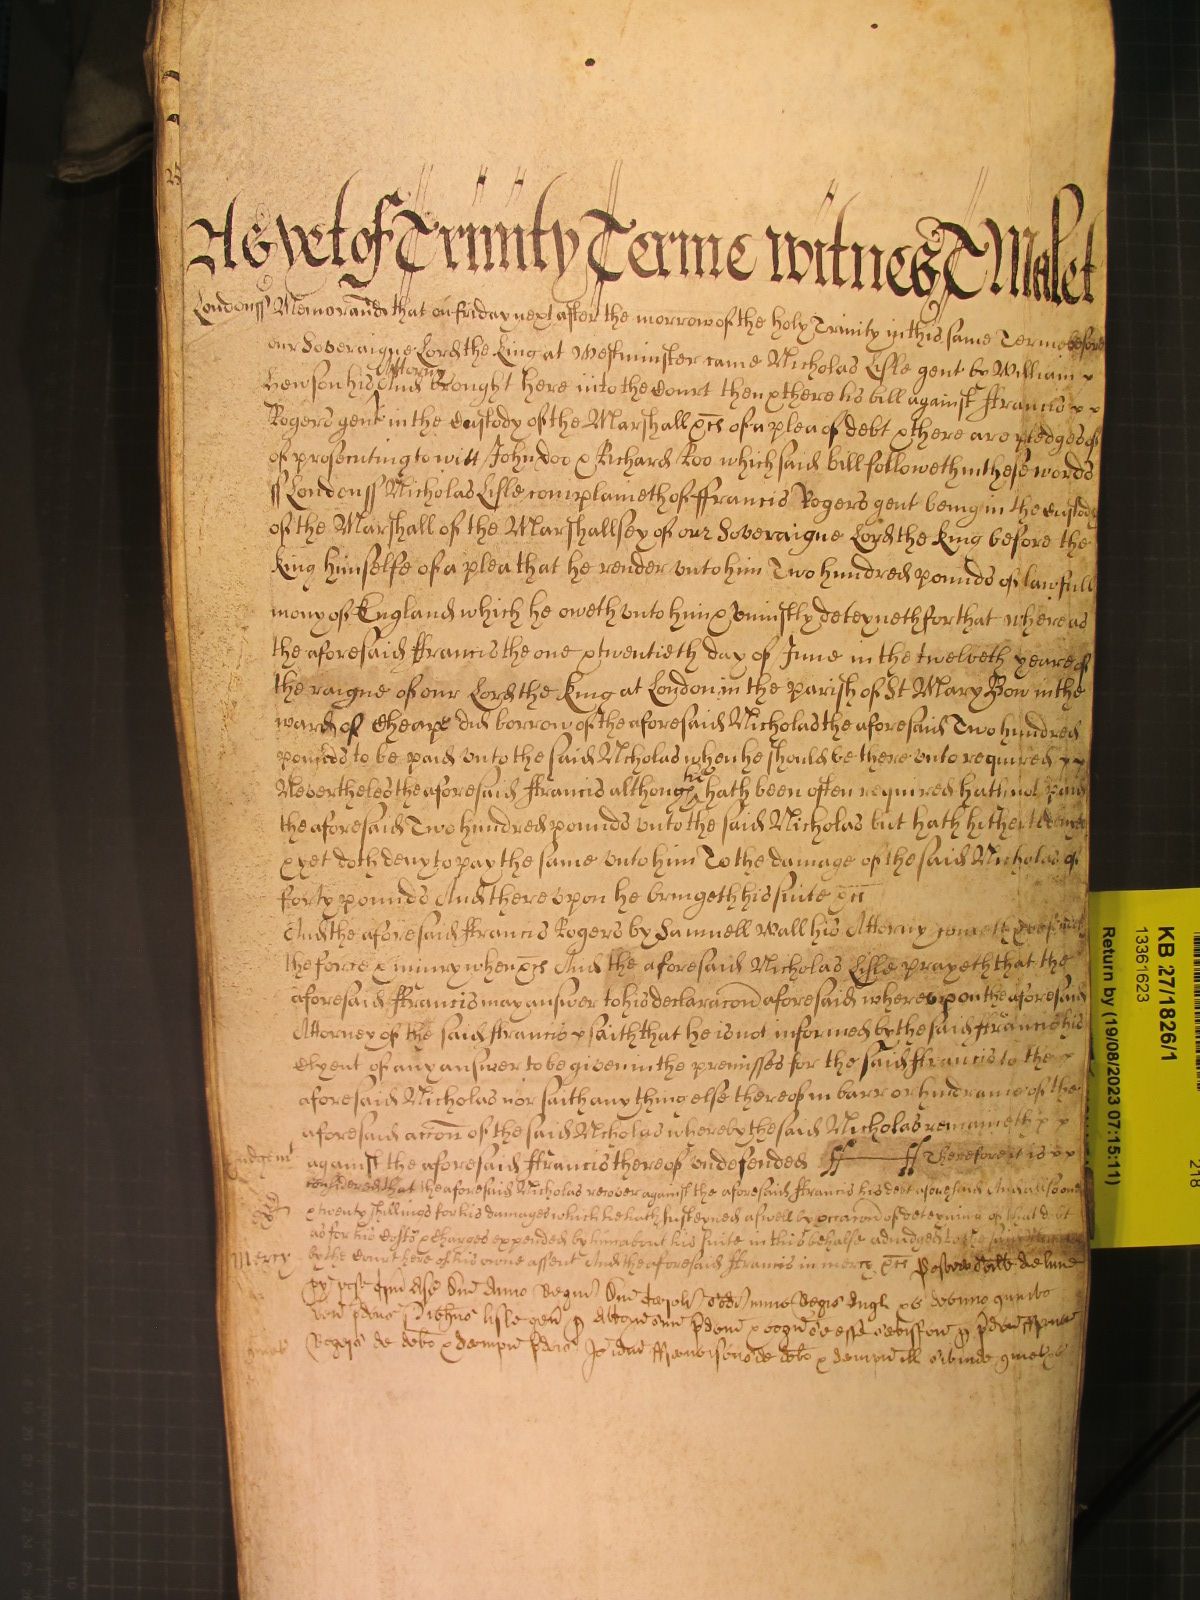 As yet of Trinity Terme Witnes T Malet
Londonss Memorand that on friday next after the morrow of the holy Trinity in this same Terme before
our Soveraigne Lord the King at Westminster came Nicholas Lisle gent by William x
Hewson his Attorny And brought here into the Court then x there his bill against ffrancis x x
Rogers gent in the Custody of the Marshall xcs of a plea of debt x there are pledges of
of prosecuting to witt John doo x Richard Roo which said bill followeth in these words
ss Londonss Nicholas Lisle complaineth of ffrancis Rogers gent being in the Custody
of the Marshall of the Marshallsey of our Soveraigne Lord the King before the
King himselfe of a plea that he render unto him Two hundred pounds of lawfull
mony of England which he oweth unto him x Uniustly deteyneth for that whereas
the aforesaid ffrancis the one x twentieth day of June in the twelveth yeare of
the raigne of our Lord the King at London in the parish of St Mary Bow in the
ward of Cheape did borrow of the aforesaid Nicholas the aforesaid Two hundred
pounds to be paid unto the said Nicholas when he should be there unto required x x
Nevertheles the aforesaid ffrancis although he hath been often required hath not paid
the aforesaid Two hundred pounds unto the said Nicholas but hath hitherto denyed
x yet doth deny to pay the same unto him To the damage of the said Nicholas of
forty pounds And there upon he bringeth his suite xcs
And the aforesaid ffrancis Rogers by Samuell Wall his Attorny cometh
the force x iniury when xcs And the aforesaid Nicholas Lisle prayeth that the
aforesaid ffrancis may answer to his declaracon aforesaid whereupon the aforesaid
Attorney of the said ffrancis x saith that he is not informed by the said ffrancis his
Clyent of any answer to be given in the premisses for the said ffrancis to the x
aforesaid Nicholas nor saith any thing else thereof in barr or hindrance of the
aforesaid accon of the said Nicholas whereby the said Nicholas remaineth x x
Judgemt against the aforesaid ffrancis thereof undefended ss ss Therefore it is x x
considered that the aforesaid Nicholas recover against the aforesaid ffrancis his debt aforesaid And allsoe
x twenty shillings for his damages which he hath susteyned aswell by occacon of deteyning of that debt
as for his Costs x Charges expended by him about his suite in this behalfe adiudged to the said
Mercy by the Court here of his owne assent And the aforesaid ffrancis in mercy xcs Postea
KB 27/1826/1
13361623
Return by (19/08/2023 07:15:11)